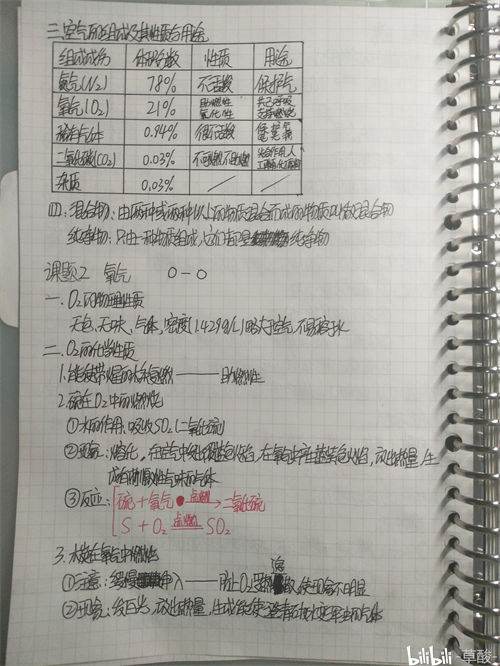 三.空气的组成及其性质与用途
组成成份 体积分数 性质 用途
氮气(N2) 78% 不活泼 保护气
氧气(O2) 21% 助燃性 氧化性 供给呼吸 支持燃烧
稀有气体 0.94% 很不活泼
二氧化碳(CO2) 0.03% 不可燃不助燃 光合作用
杂质 0.03% / /
四.混合物:由两种或两种以上的物质混合而成的物质叫做混合物
纯净物:只由一种物质组成,它们都是纯净物
课题2 氧气 O-O
一.O2的物理性质
无色,无味,气体,密度(1.429g/L)略大于空气,不易溶于水
二.O2的化学性质
1.能使带火星的木条复燃——助燃性
2.硫在O2中的燃烧
①水的作用,吸收SO2(二氧化硫)
②现象:熔化,在空气中发出微弱的淡蓝色火焰,在氧气中产生蓝紫色火焰,放出热量,生
成有刺激性气味的气体
③反应:硫+氧气 点燃→ 二氧化硫
S+O2 点燃 SO2
3.木炭在氧气中燃烧
①注意:缓慢伸入——防止O2 使现象不明显
②现象:发白光,放出热量,生成能使澄清石灰水变浑浊的气体
bilibili 草酸